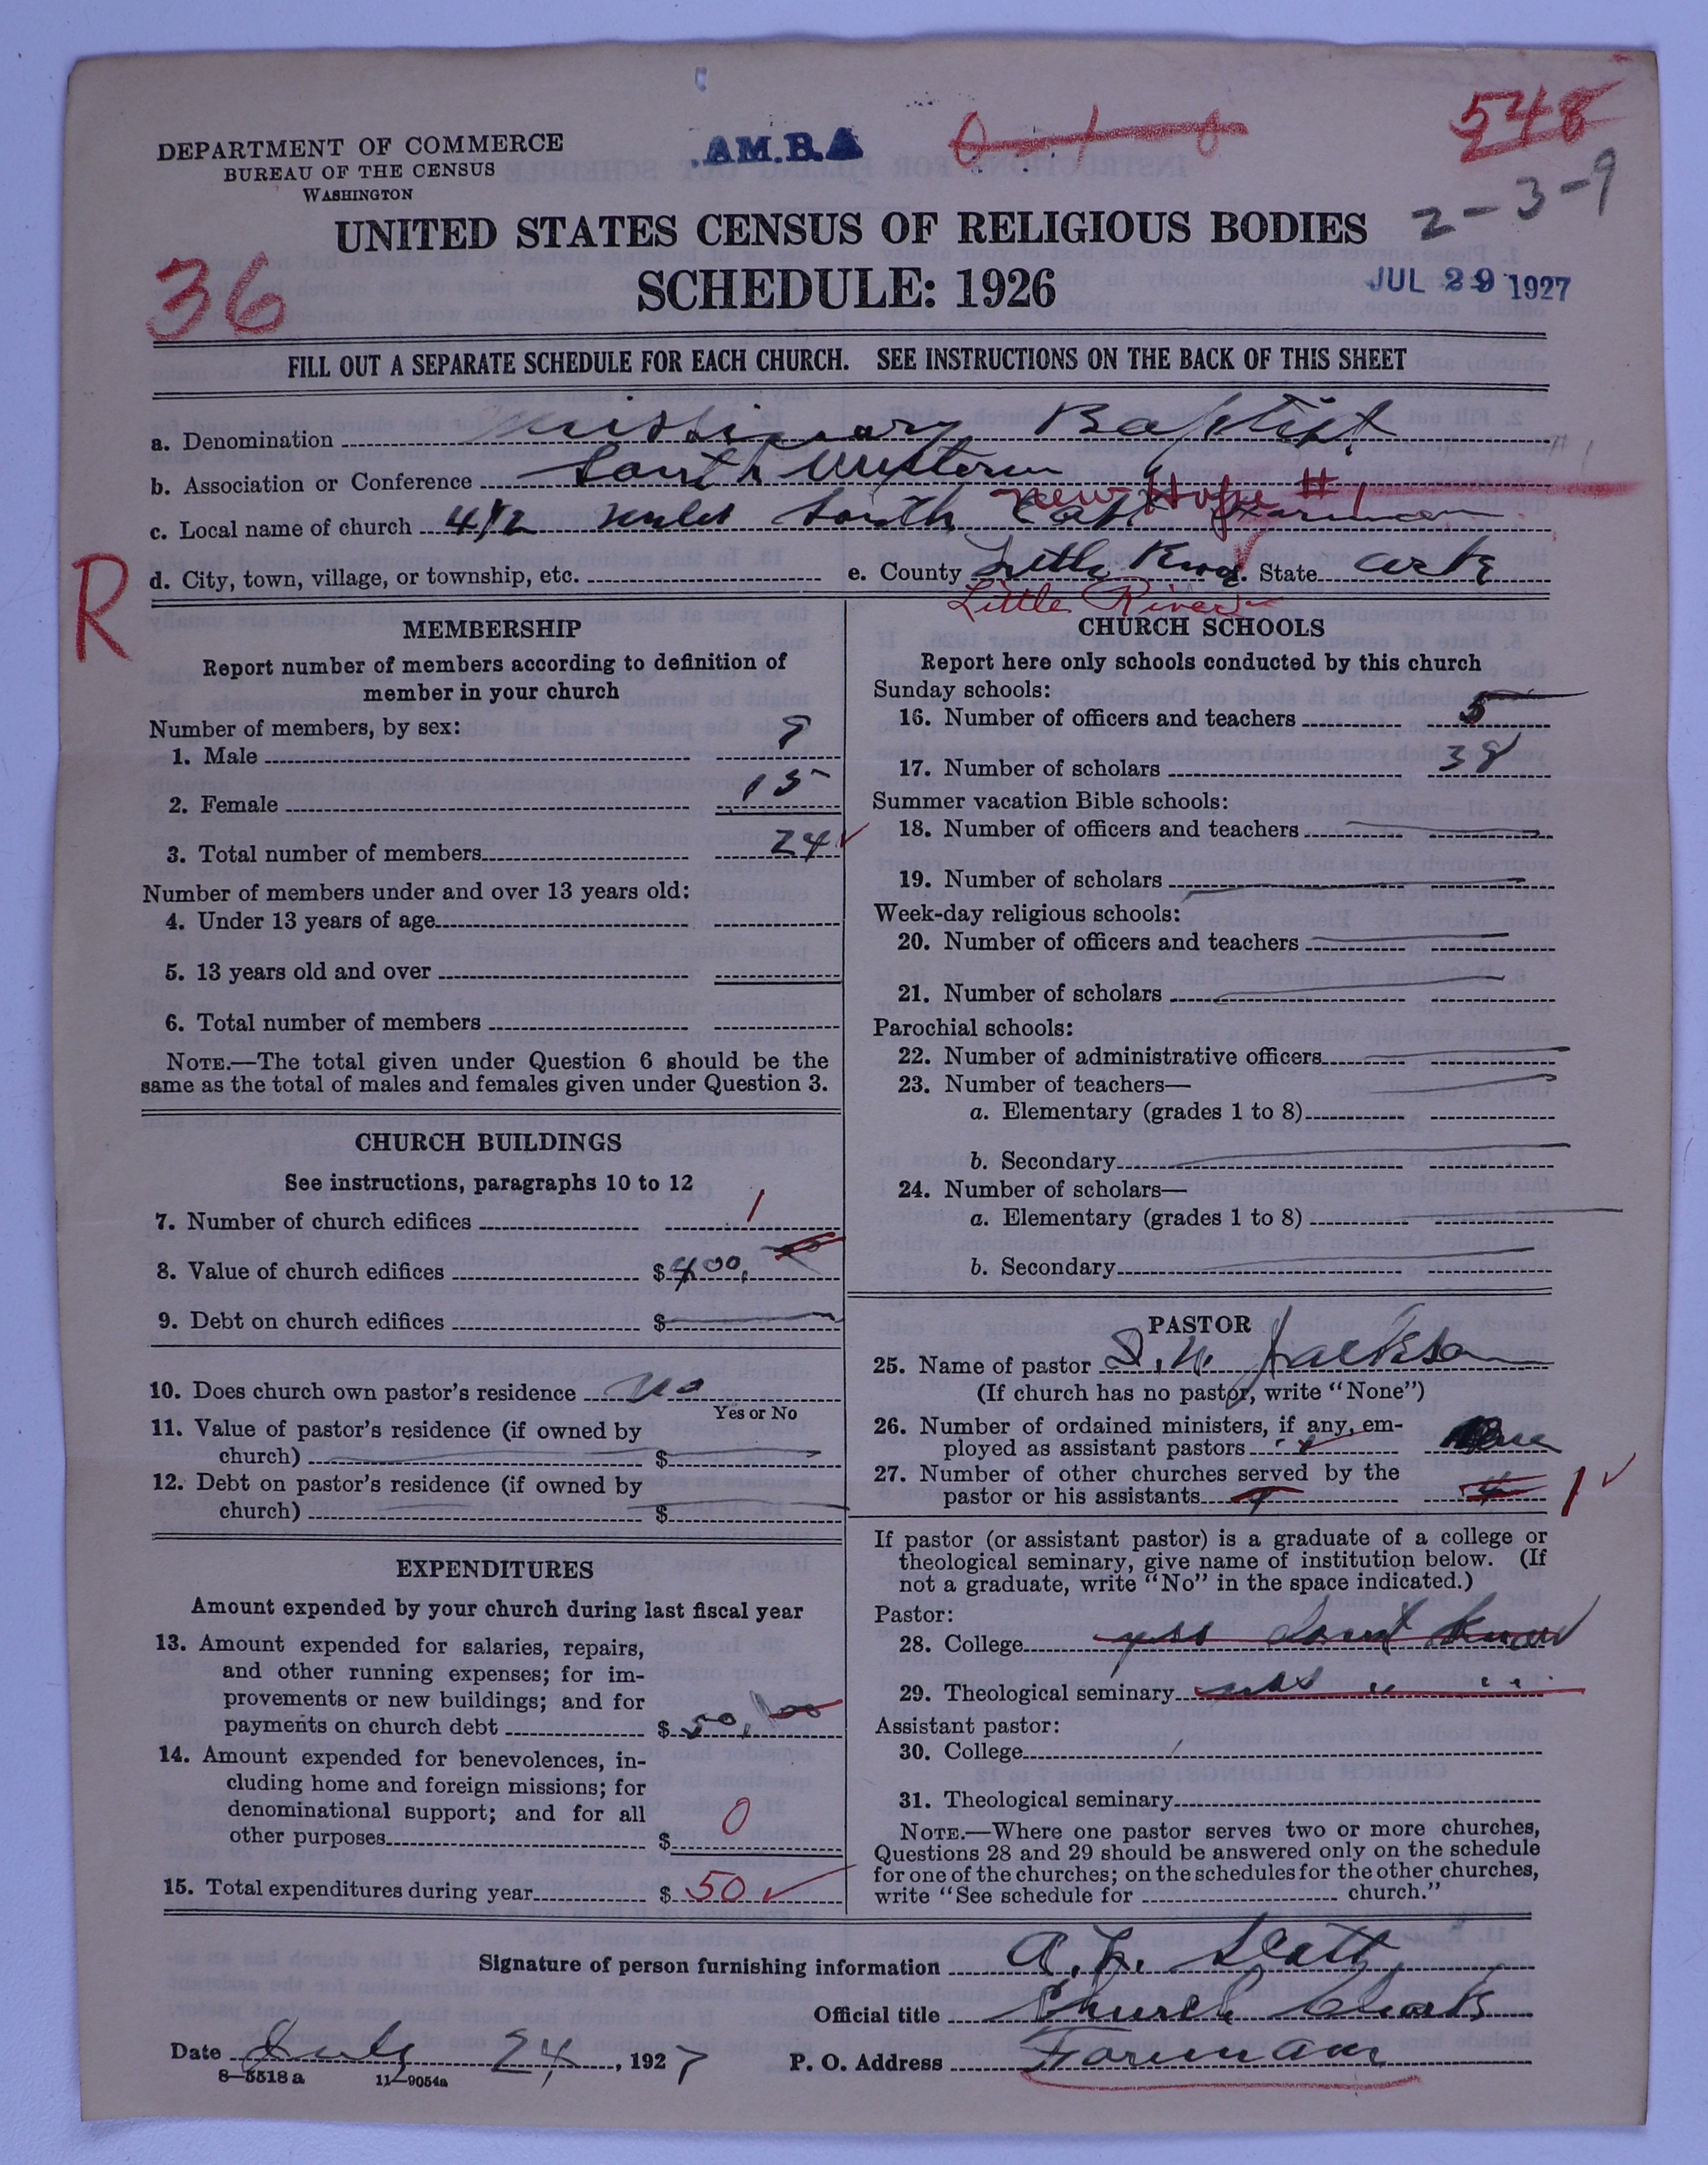 548
AM.B.A
DEPARTMENT OF COMMERCE
BUREAU OF THE CENSUS
WASHINGTON
2-3-9
UNITED STATES CENSUS OF RELIGIOUS BODIES
36
SCHEDULE: 1926
JUL 29 1927
FILL OUT A SEPARATE SCHEDULE FOR EACH CHURCH. SEE INSTRUCTIONS ON THE BACK OF THIS SHEET
a. Denomination Missionary Baptist
b. Association or Conference South Western
New Hope #1
c. Local name of church 4 1/2 miles South East Foreman
R
d. City, town, village, or township, etc. e. County Little River State Ark
Little River
MEMBERSHIP
Report number of members according to definition of
member in your church
Number of members, by sex:
1. Male 9
2. Female 15
3. Total number of members 24
Number of members under and over 13 years old:
4. Under 13 years of age
5. 13 years old and over
6. Total number of members
NOTE.—The total given under Question 6 should be the
same as the total of males and females given under Question 3.
CHURCH BUILDINGS
See instructions, paragraphs 10 to 12
7. Number of church edifices 1
8. Value of church edifices $400.00
9. Debt on church edifices $
10. Does church own pastor's residence no
Yes or No
11. Value of pastor's residence (if owned by
church) $
12. Debt on pastor's residence (if owned by
church) $
EXPENDITURES
Amount expended by your church during last fiscal year
13. Amount expended for salaries, repairs,
and other running expenses; for im-
provements or new buildings; and for
payments on church debt $50.00
14. Amount expended for benevolences, in-
cluding home and foreign missions; for
denominational support; and for all
other purposes $ 0
15. Total expenditures during year $ 50
CHURCH SCHOOLS
Report here only schools conducted by this church
Sunday schools:
16. Number of officers and teachers 5
17. Number of scholars 38
Summer vacation Bible schools:
18. Number of officers and teachers
19. Number of scholars
Week-day religious schools:
20. Number of officers and teachers
21. Number of scholars
Parochial schools:
22. Number of administrative officers
23. Number of teachers—
a. Elementary (grades 1 to 8)
b. Secondary
24. Number of scholars—
a. Elementary (grades 1 to 8)
b. Secondary
PASTOR
25. Name of pastor S. N. Jackson
(If church has no pastor, write "None")
26. Number of ordained ministers, if any, em-
ployed as assistant pastors
27. Number of other churches served by the
pastor or his assistants 4 1
If pastor (or assistant pastor) is a graduate of a college or
theological seminary, give name of institution below. (If
not a graduate, write "No" in the space indicated.)
Pastor:
28. College yes dont know
29. Theological seminary yes " "
Assistant pastor:
30. College
31. Theological seminary
NOTE.—Where one pastor serves two or more churches,
Questions 28 and 29 should be answered only on the schedule
for one of the churches; on the schedules for the other churches,
write "See schedule for church."
Signature of person furnishing information
Official title Church Clerk
Date July 24, 1927 P. O. Address Foreman
8—5518 a 11—9054a